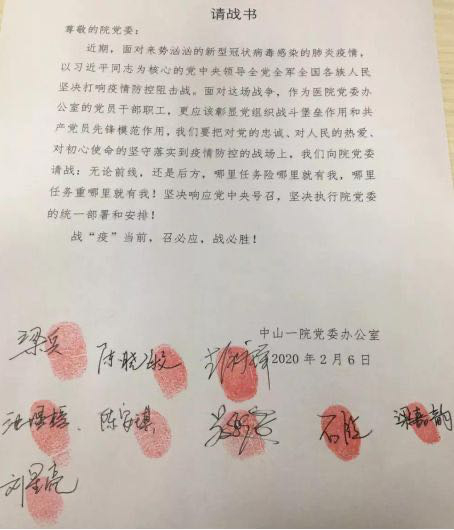 请战书
尊敬的院党委：
近期，面对来势汹汹的新型冠状病毒感染的肺炎疫情，
以习近平同志为核心的党中央领导全党全军全国各族人民
坚决打响疫情防控阻击战。面对这场战争，作为医院党委办
公室的党员干部职工，更应该彰显党组织战斗堡垒作用和共
产党员先锋模范作用，我们要把对党的忠诚、对人民的热爱、
对初心使命的坚守落实到疫情防控的战场上，我们向院党委
请战：无论前线，还是后方，哪里任务险哪里就有我，哪里
任务重哪里就有我！坚决响应党中央号召，坚决执行院党委
的统一部署和安排！
战“疫”当前，召必应，战必胜！
中山一院党委办公室
2020 年 2 月 6 日
梁兵
陈晓敏
陈安琪
石岐
梁嘉韵
刘星亮